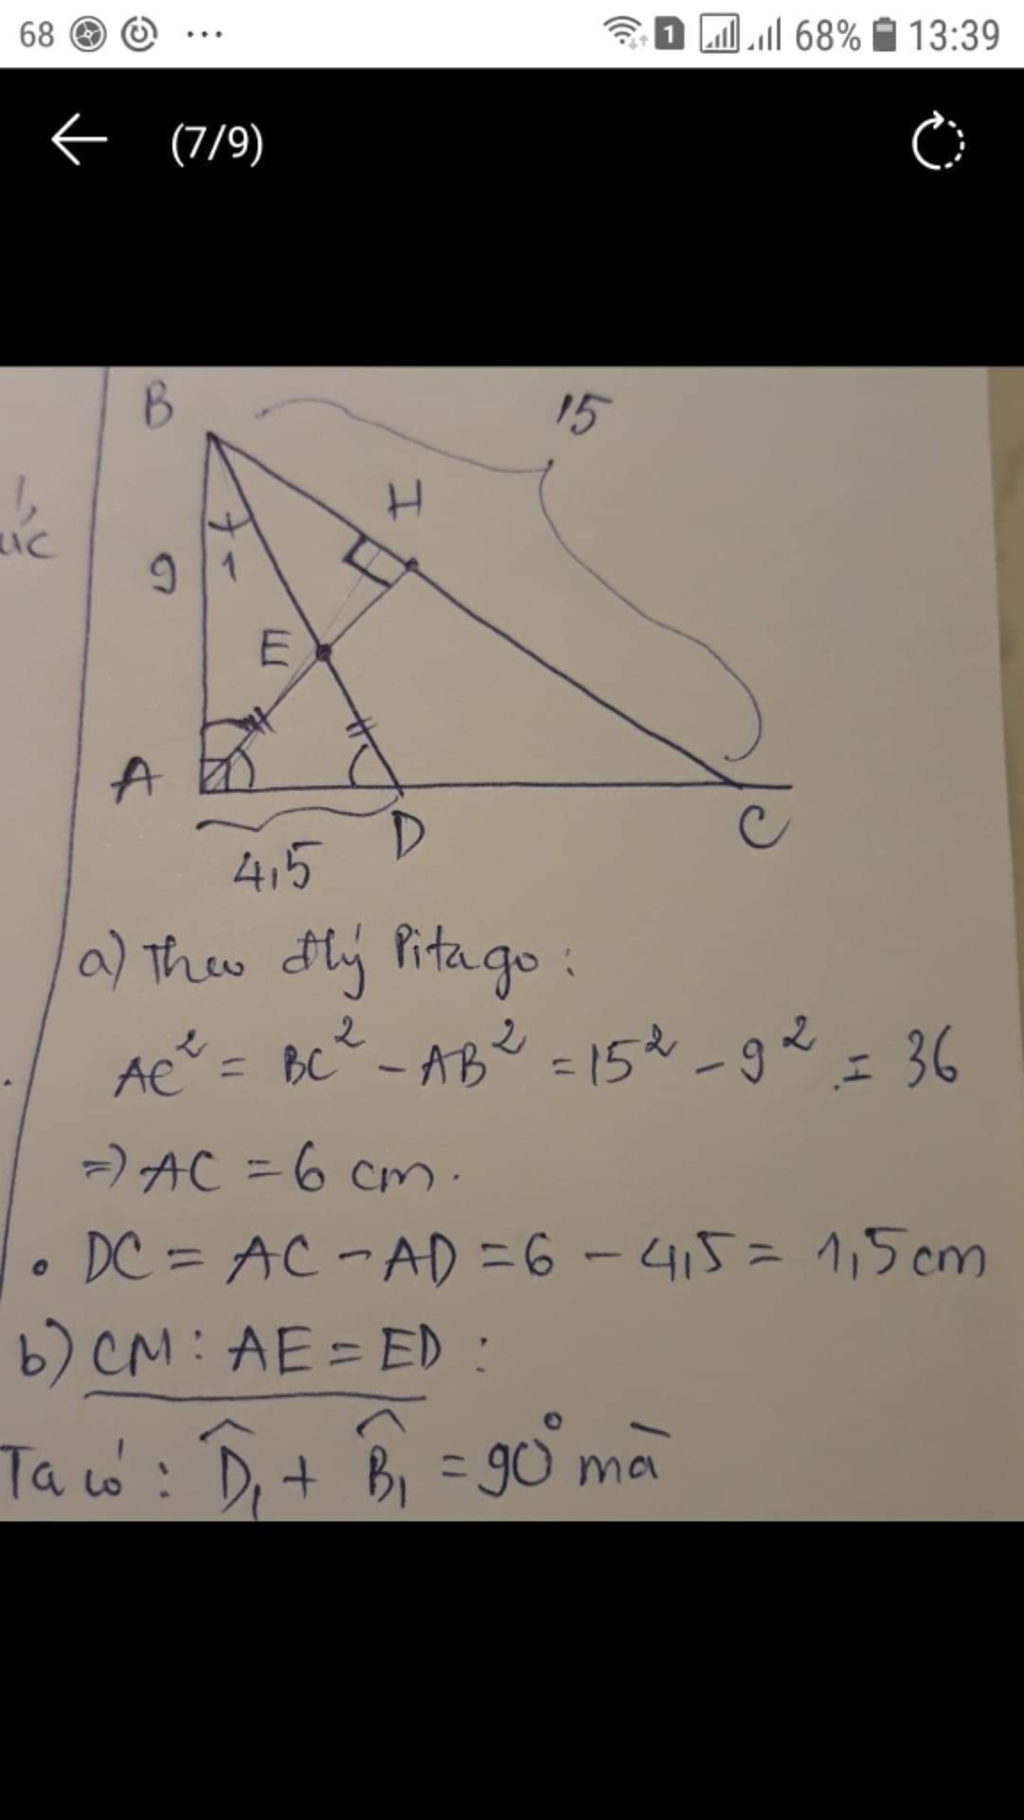 68 ... 1 68% 13:39
(7/9)
B
15
H
9
1
E
A
D
C
4,5
a) Theo đlý Pitago :
AC² = BC² - AB² = 15² - 9² = 36
=> AC = 6 cm.
• DC = AC - AD = 6 - 4,5 = 1,5 cm
b) CM : AE = ED :
Ta có : D̂₁ + B̂₁ = 90° mà